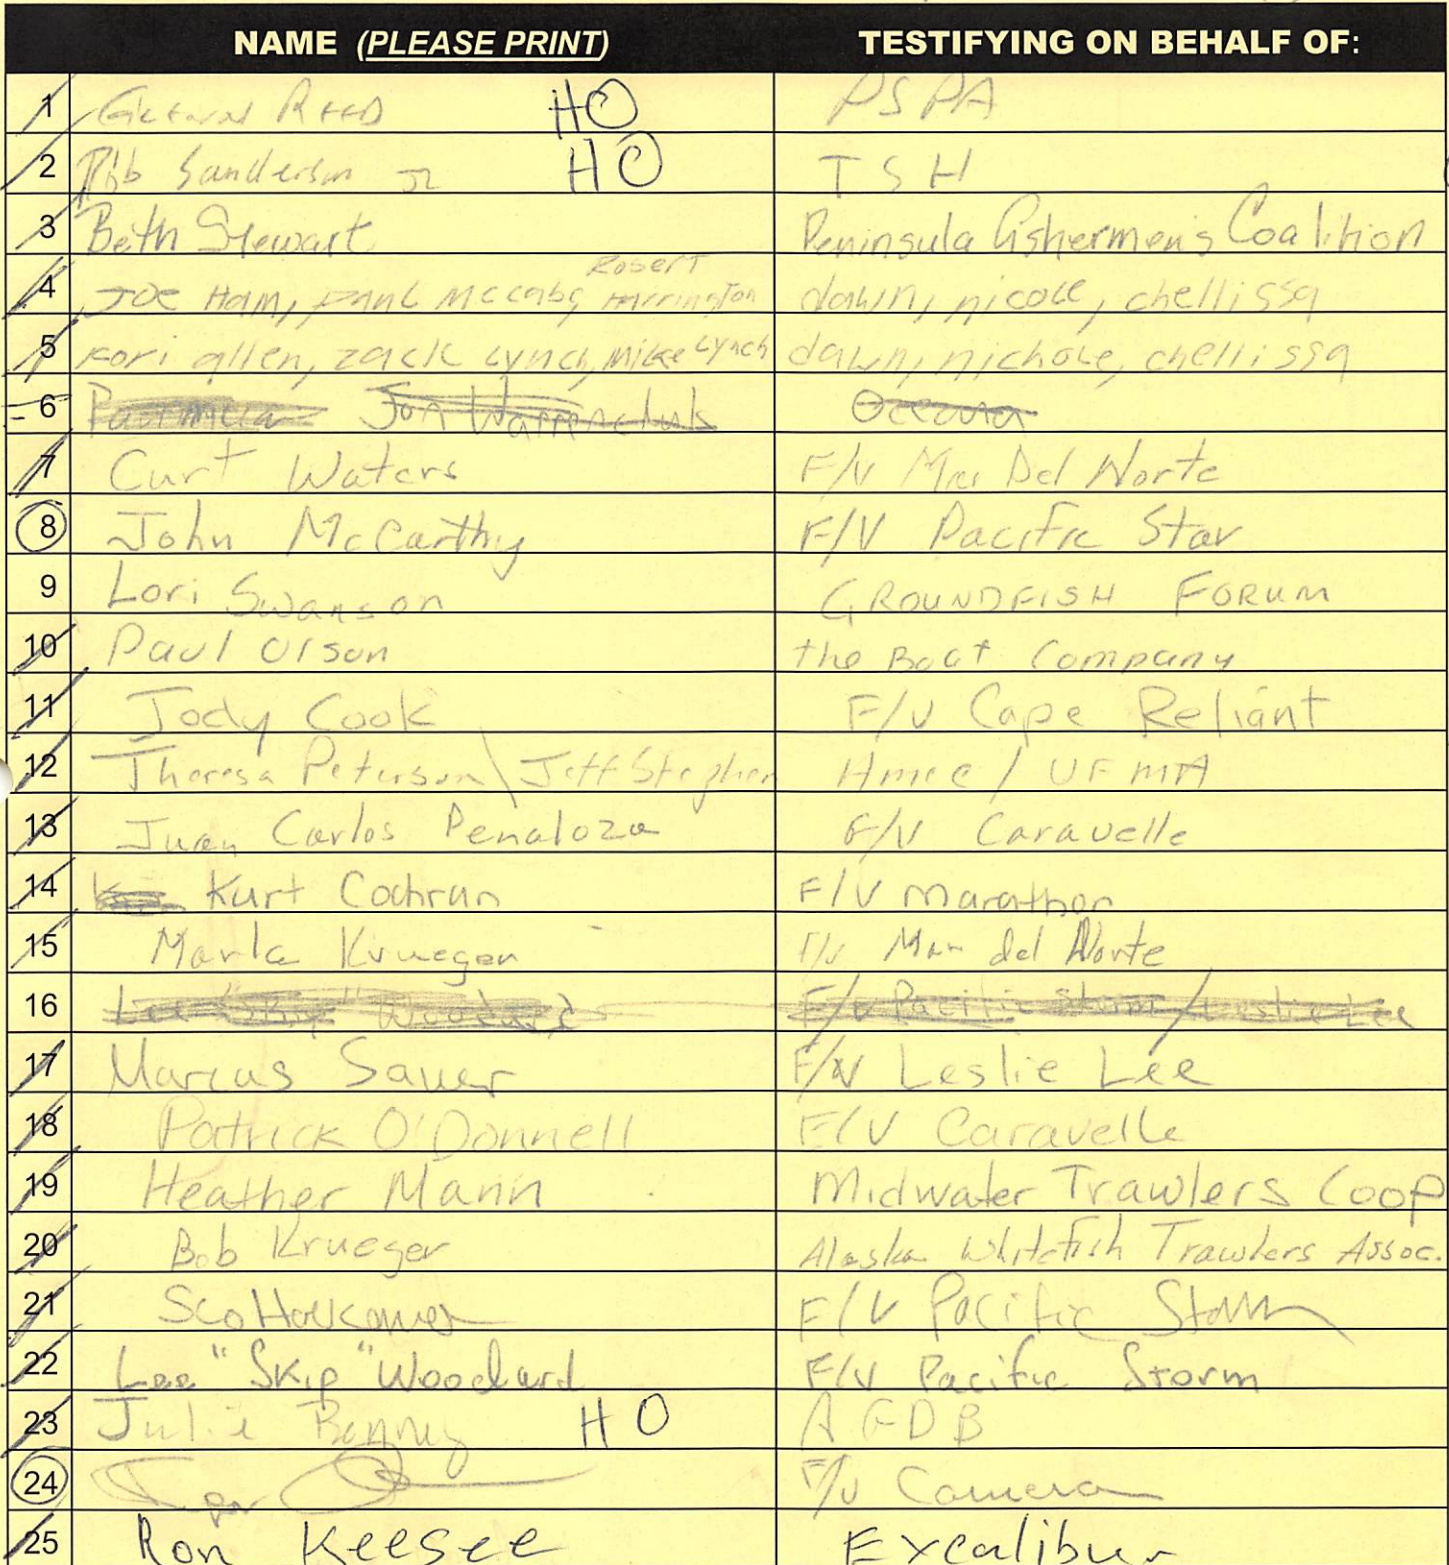 NAME (PLEASE PRINT) TESTIFYING ON BEHALF OF:
1 Glenn Reed HO PSPA
2 Rob Sanderson Jr HO TSH
3 Beth Stewart Peninsula Fishermen's Coalition
Robert
4 Joe Ham, Paul McCabe, Harrington dawn, nicole, chellissa
5 Kori allen, zack Lynch, Mike Lynch dawn, nichole, chellissa
6 Jon Warrenchuk Oceana
7 Curt Waters F/V Mar Del Norte
8 John McCarthy F/V Pacific Star
9 Lori Swanson GROUNDFISH FORUM
10 Paul Olson the Boat Company
11 Jody Cook F/V Cape Reliant
12 Theresa Peterson \ Jeff Stephen AMCC / UFMA
13 Juan Carlos Penaloza F/V Caravelle
14 Kurt Cochran F/V Marathon
15 Marla Krueger F/V Mar del Norte
16 Lee "Skip" Woodard F/V Pacific Storm / Leslie Lee
17 Marcus Sauer F/V Leslie Lee
18 Patrick O'Donnell F/V Caravelle
19 Heather Mann Midwater Trawlers Coop
20 Bob Krueger Alaska Whitefish Trawlers Assoc.
21 F/V Pacific Storm
22 Lee "Skip" Woodard F/V Pacific Storm
23 Julie Bonney HO AGDB
24 F/V
25 Ron Keesee Excalibur